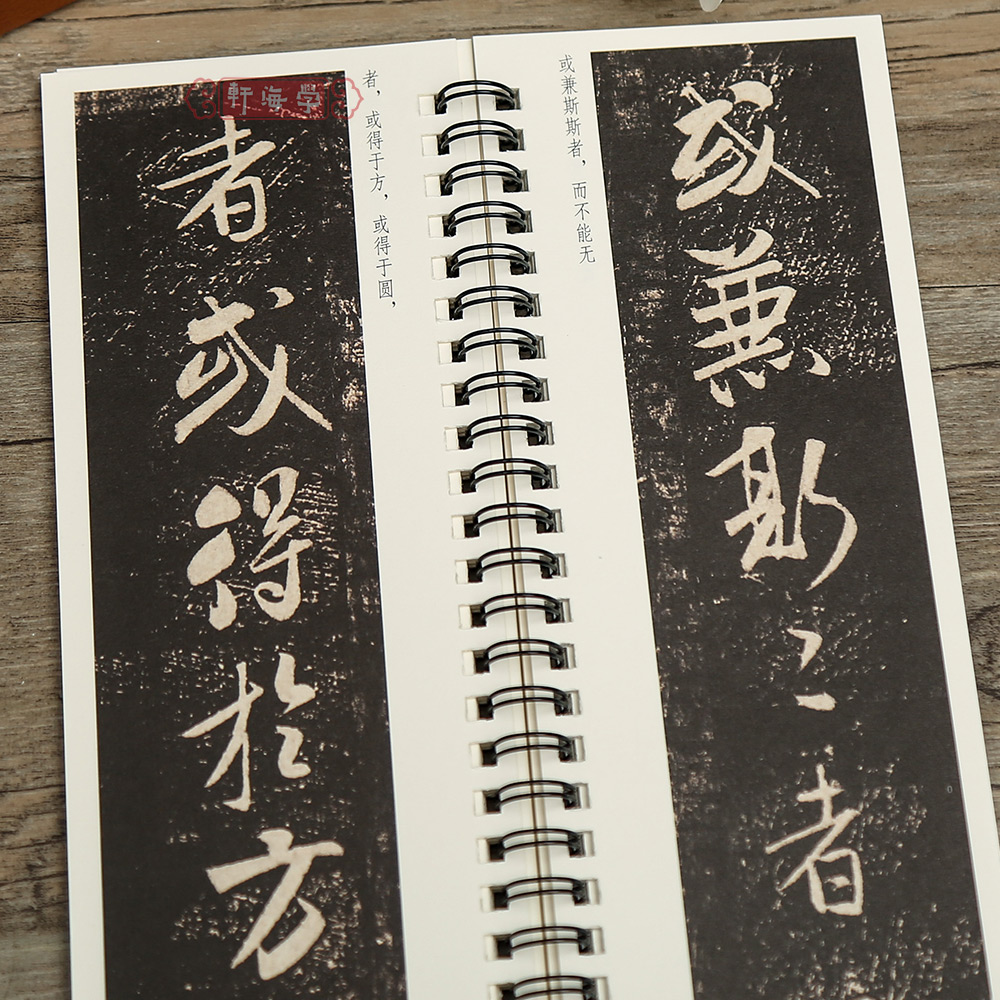 軒海堂
者或得於方
者，或得于方，或得于圆，
或兼斯二者
或兼斯斯者，而不能无